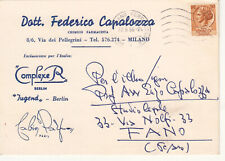 Dott. Federico Capalozza
CHIMICO FARMACISTA
8/6, Via dei Pellegrini - Tel. 576.274 - MILANO
Esclusivista per l'Italia:
Complexe R
BERLIN
"Jugend" - Berlin
PARIS
Prof Avv Capalozza
Studio Legale
33- Via Nolfi- 33
FANO
(Pesaro)